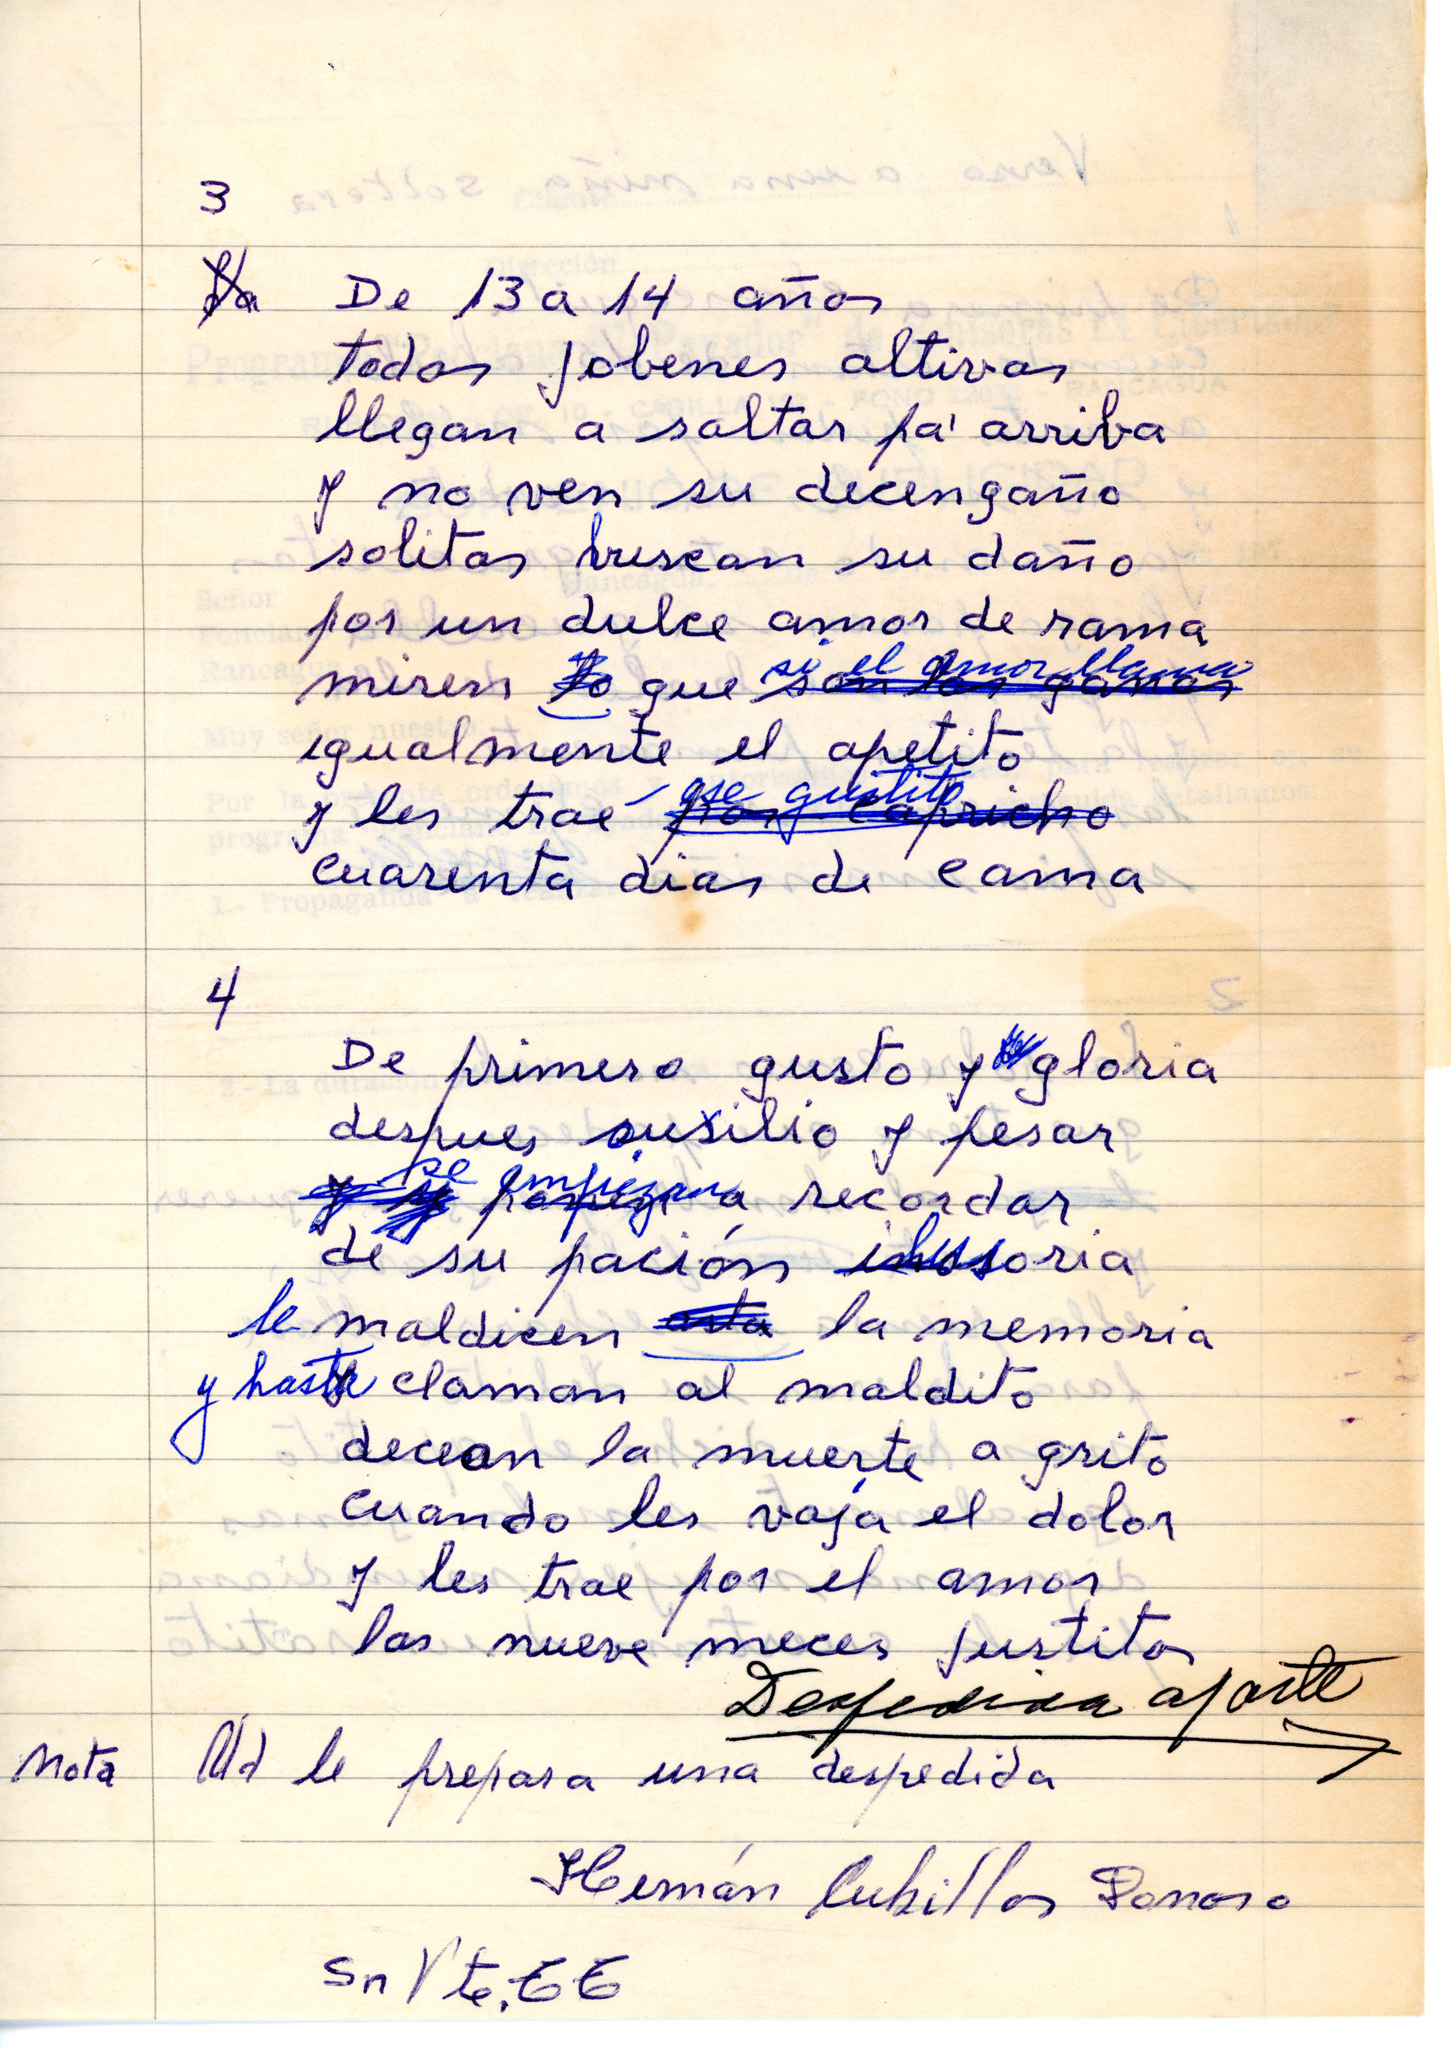 3
De 13 a 14 años
todas jobenes altivas
llegan a saltar pa' arriba
y no ven su decengaño
solitas buscan su daño
por un dulce amor de rama
si el amor llama
miren lo que son las ganas
igualmente el apetito
ese gustito
y les trae por capricho
cuarenta dias de cama
4
De primero gusto y gloria
despues auxilio y pesar
se empiezan
y se ponen a recordar
de su pación ilusoria
le maldicen asta la memoria
y hasta claman al maldito
decean la muerte a grito
cuando les vaja el dolor
y les trae por el amor
los nueve meces justitos
Despedida aparte
Nota Ud le prepara una despedida
Hernán Cubillos Donoso
Sn Vte. TT